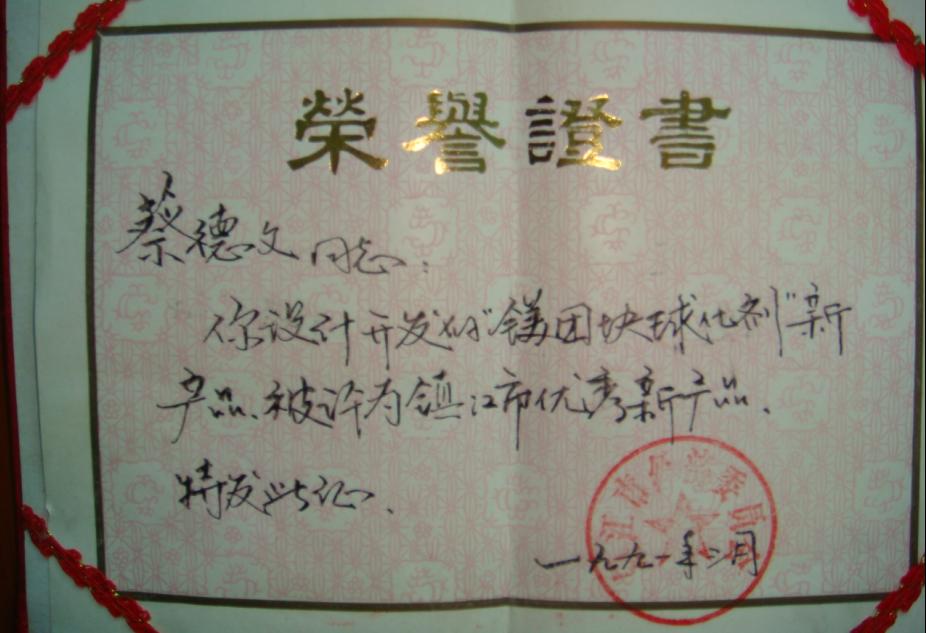 榮譽證書
蔡德文同志：
你设计开发的“镁团块球化剂”新
产品、被评为镇江市优秀新产品、
特发此证、
江市 委员
一九九一年二月